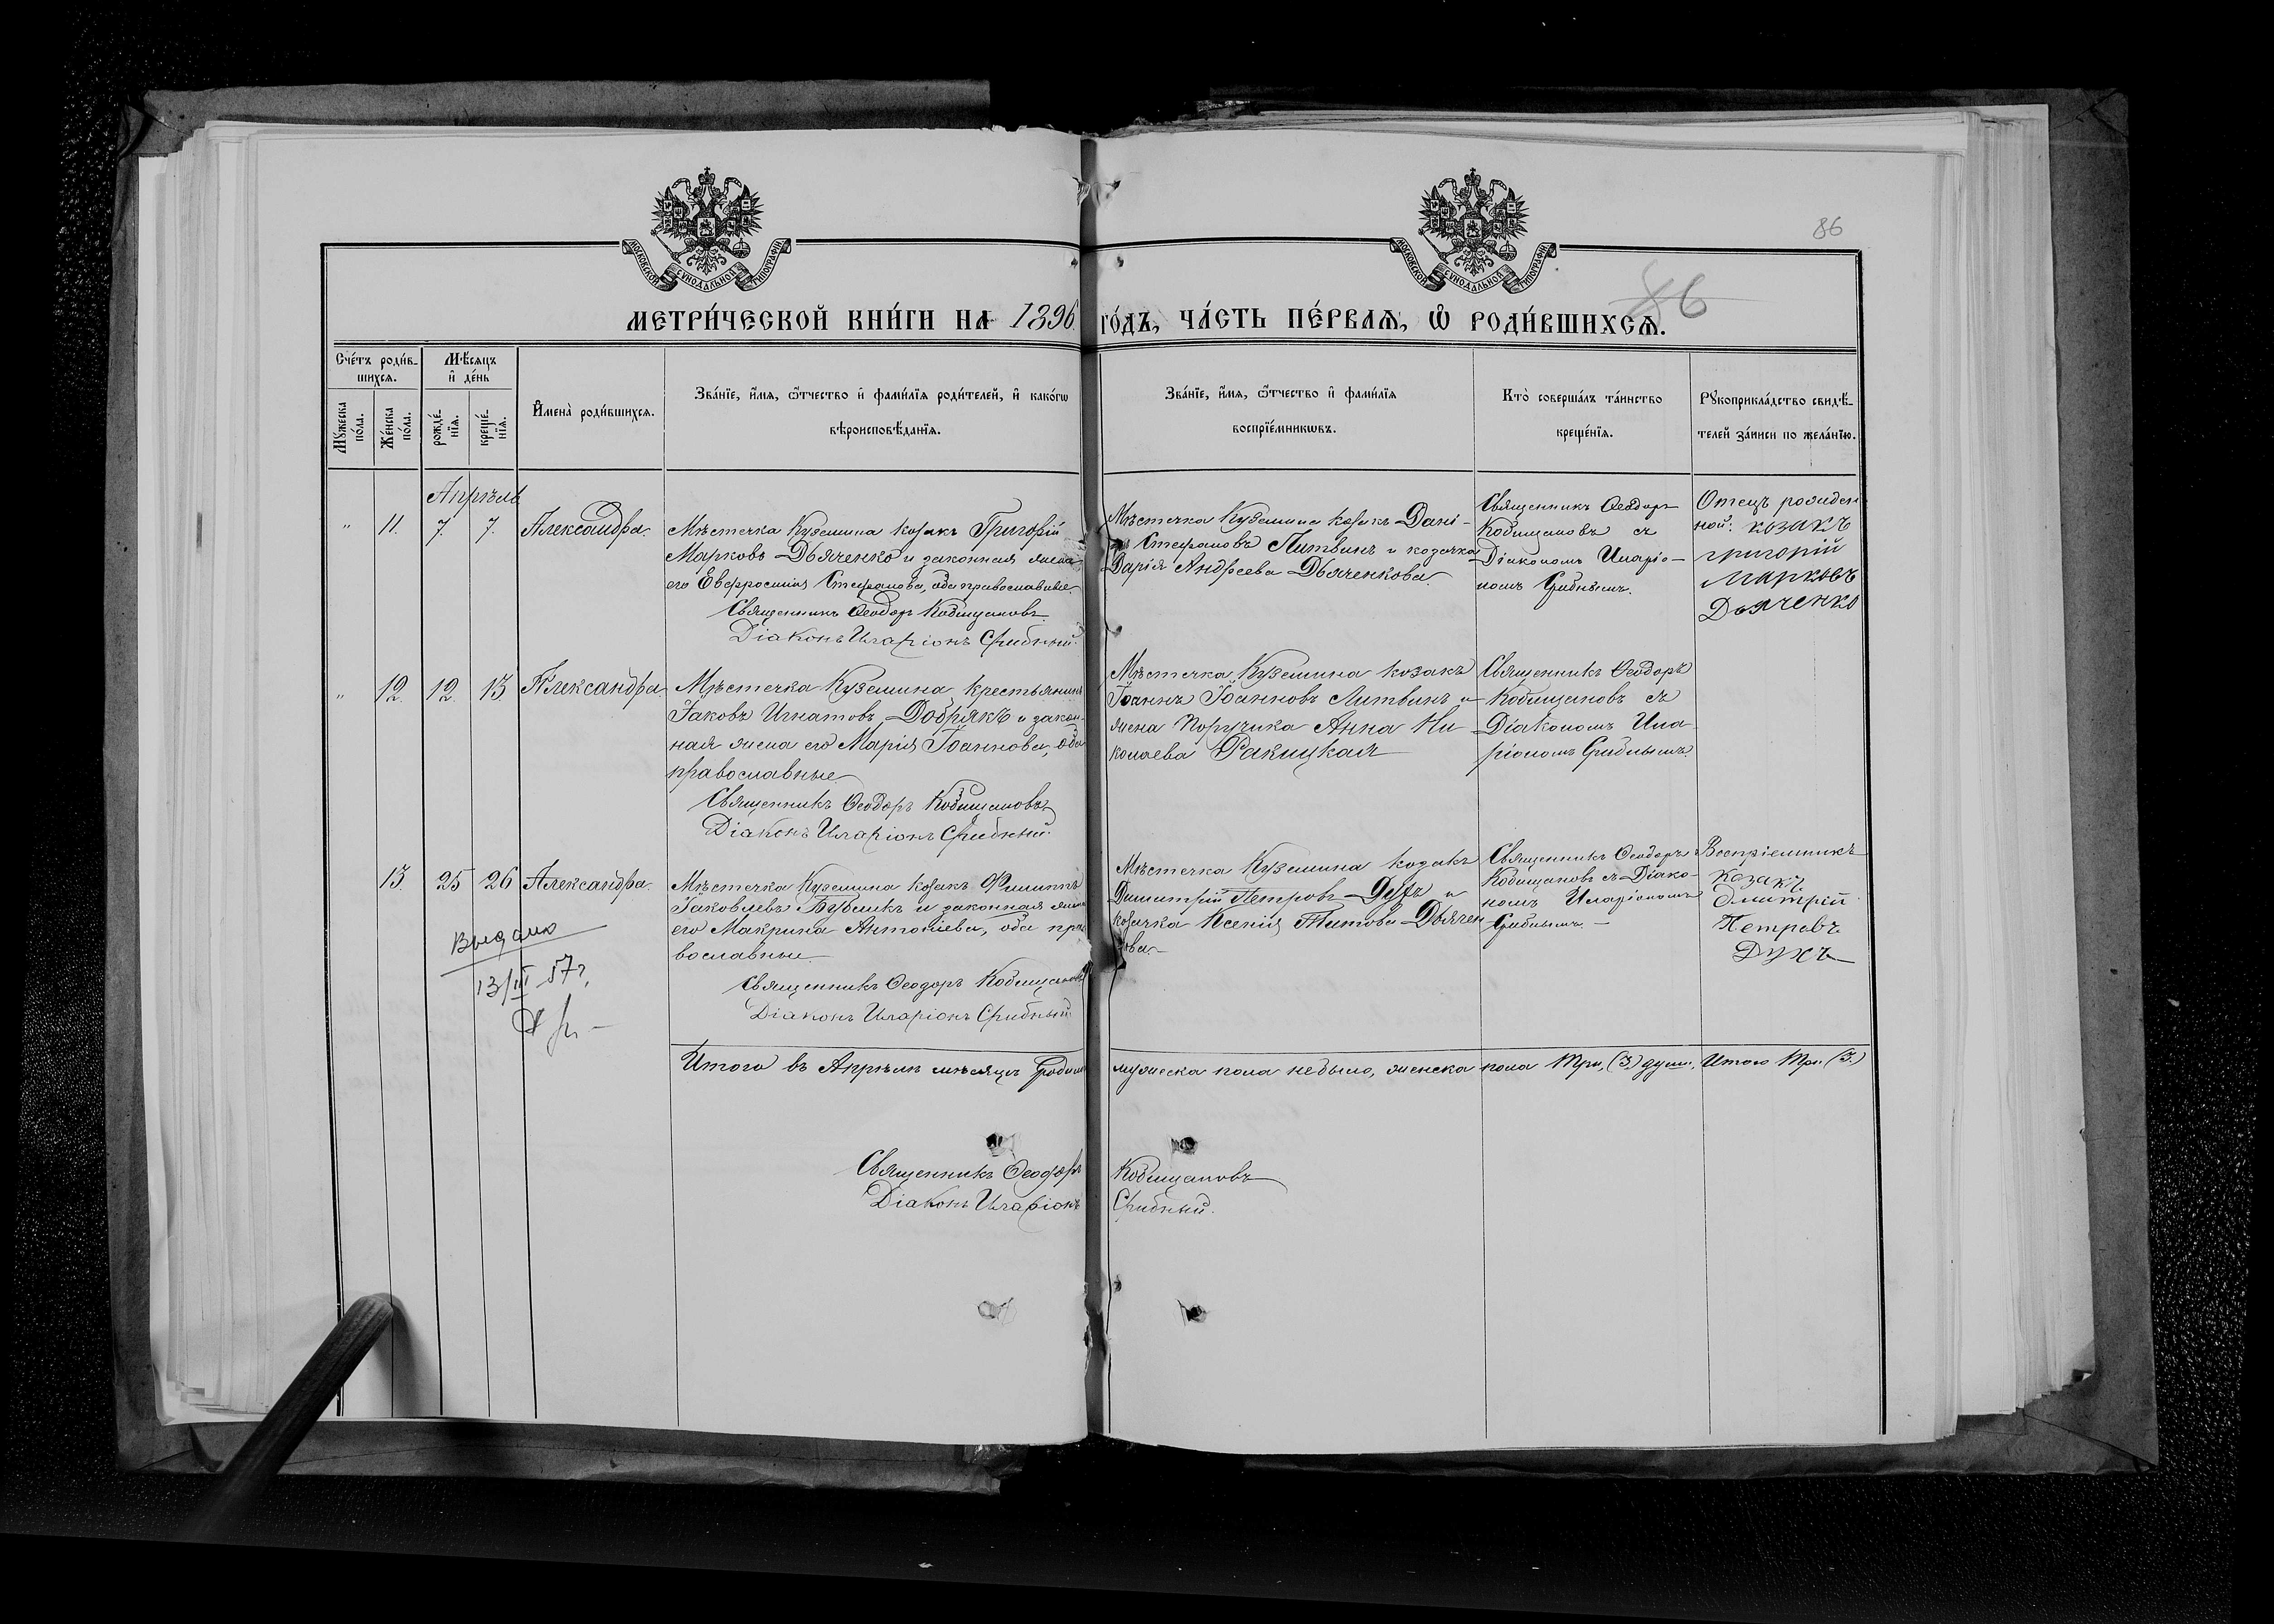 86
86
МОСКОВСКОЙ СѴНОДАЛЬНОЙ ТИПОГРАФІИ
МОСКОВСКОЙ СѴНОДАЛЬНОЙ ТИПОГРАФІИ
МЕТРИ́ЧЕСКОЙ КНИ́ГИ НА 1896 ГО́ДЪ, ЧА́СТЬ ПЕ́РВАѦ, Ѽ РОДИ́ВШИХСѦ.
Сче́тъ роди́в-
шихсѧ.
Мѣ́сѧцъ
и҆ де́нь
Мꙋ́жеска
по́ла.
Же́нска
по́ла.
рожде́-
нїѧ.
креще́-
нїѧ.
И҆мена̀ роди́вшихсѧ.
Зва́нїе, и҆́мѧ, ѻ҆́тчество и҆ фами́лїѧ роди́телей, и҆ како́гѡ
вѣроисповѣ́данїѧ.
Зва́нїе, и҆́мѧ, ѻ҆́тчество и҆ фами́лїѧ
воспрїе́мникѡвъ.
Кто̀ соверша́лъ та́инство
креще́нїѧ.
Рꙋкоприкла́дство свидѣ́-
телей за́писи по жела́нїю.
Апрѣль
" 11. 7. 7. Александра.
Мѣстечка Куземина козакъ Григорій
Марковъ Дьяченко и законная жена
его Евфросинія Стефанова, оба православные.
Священникъ Ѳеодоръ Кобищановъ
Діаконъ Иларіонъ Срибный.
Мѣстечка Куземина козакъ Дані-
Стефановъ Литвинъ и козачка
Дарія Андреева Дьяченкова
Священникъ Ѳеодоръ
Кобищановъ съ
Діакономъ Иларіо-
номъ Срибнымъ.
Отецъ рожден
ной: козакъ
григорій
Марковъ
Дьяченко
" 12. 12. 13. Александра
Мѣстечка Куземина крестьянинъ
Іаковъ Игнатовъ Добрякъ и закон-
ная жена его Марія Іоаннова, оба
православные
Священникъ Ѳеодоръ Кобищановъ
Діаконъ Иларіонъ Срибный.
Мѣстечка Куземина козакъ
Іоаннъ Іоанновъ Литвинъ и
жена Поручика Анна Ни-
колаева Ракицкая
Священникъ Ѳеодоръ
Кобищановъ съ
Діакономъ Ила-
ріономъ Срибнымъ.
13. 25 26 Александра.
Мѣстечка Куземина козакъ Филиппъ
Іаковлевъ Бубликъ и законная жена
его Макрина Антоніева, оба пра-
вославные
Священникъ Ѳеодоръ Кобищановъ
Діаконъ Иларіонъ Срибный.
Мѣстечка Куземина козакъ
Димитрій Петровъ Духъ и
козачка Ксенія Титова Дьячен
кова.
Священникъ Ѳеодоръ
Кобищановъ съ Діако-
номъ Иларіономъ
Срибнымъ.
Воспріемникъ
козакъ
Дмитрій
Петровъ
Духъ
Выдано
13/III 57г.
Итого въ Апрѣлѣ мѣсяцѣ родил мужеска пола небыло, женска пола три, (3.) души, Итого три (3.)
Священникъ Ѳеодоръ Кобищановъ
Діаконъ Иларіонъ Срибный.